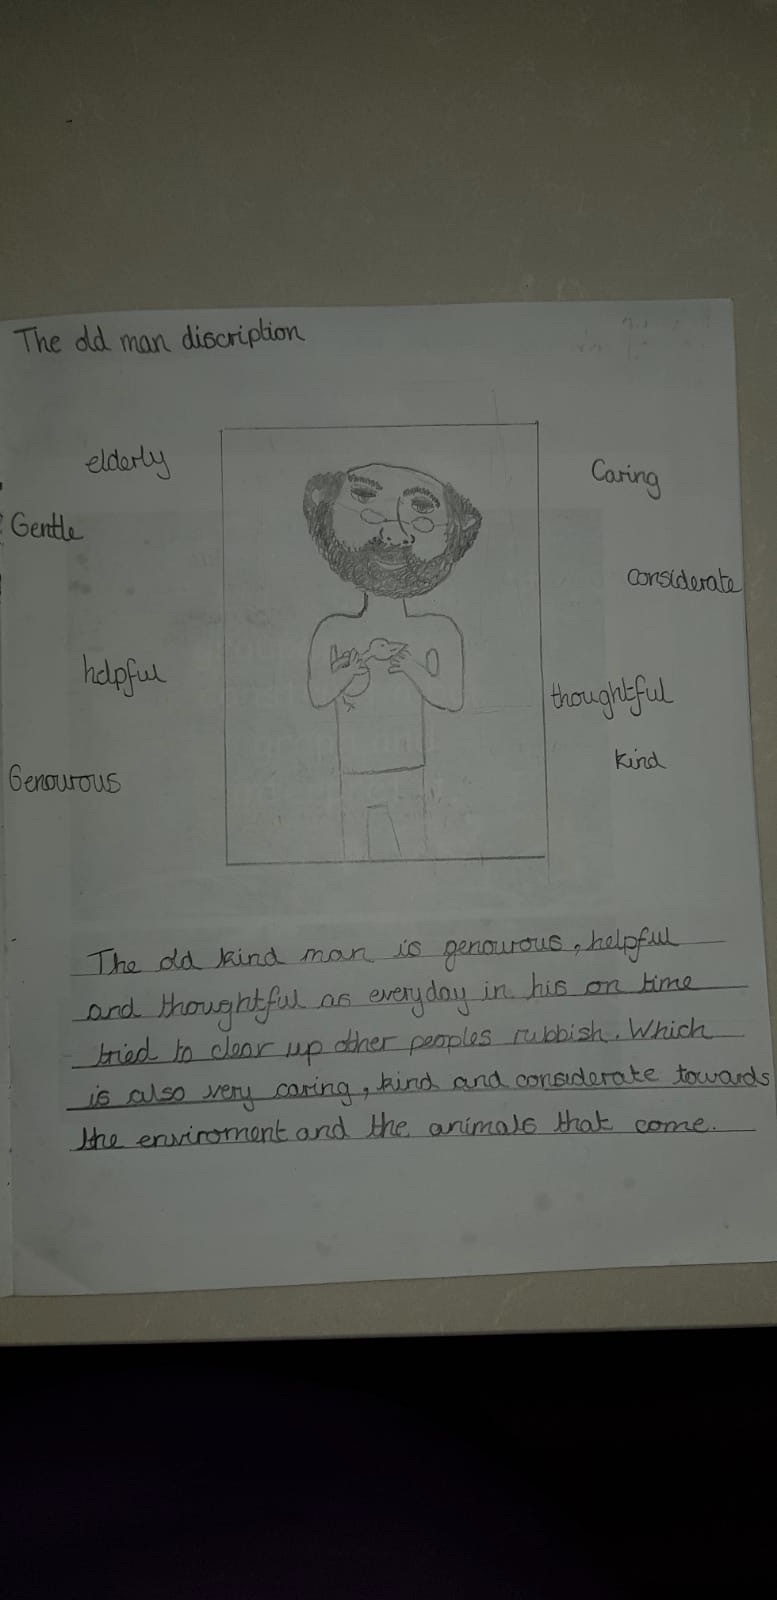 The old man discription
elderly
Caring
Gentle
considerate
helpful
thoughtful
kind
Genourous
The old kind man is genourous, helpful
and thoughtful as everyday in his on time
tried to clear up other peoples rubbish. Which
is also very caring, kind and considerate towards
the enviroment and the animals that come.